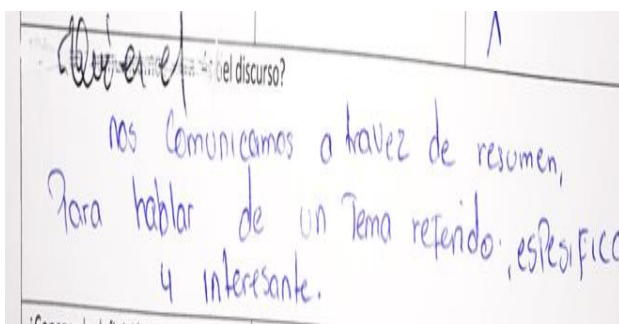 ¿Qué es el el discurso?
nos comunicamos a travez de resumen,
Para hablar de un Tema referido, espesifico
y interesante.